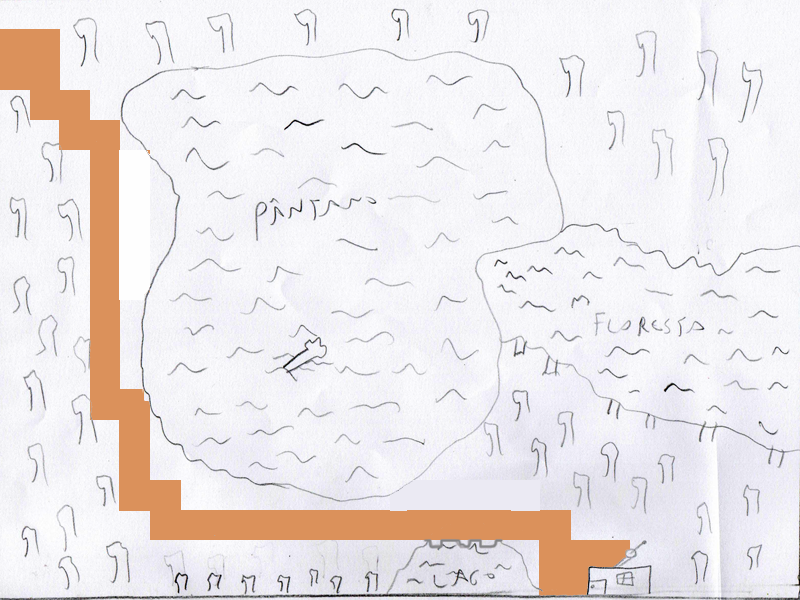 PÂNTANO
FLORESTA
LAGO